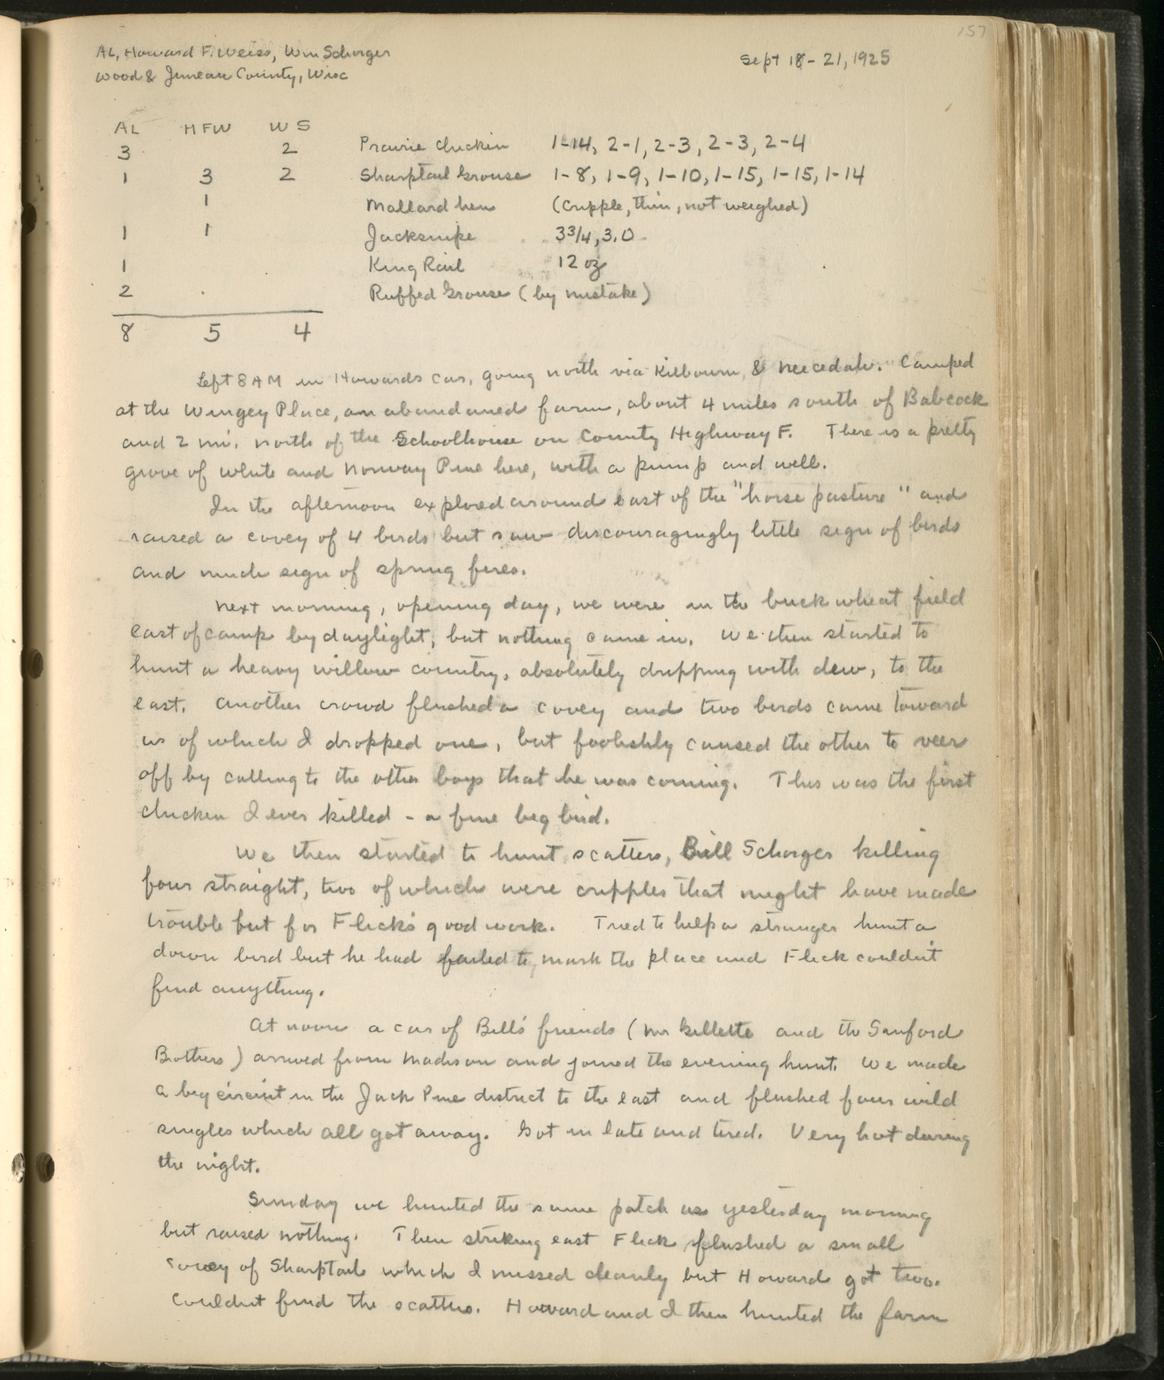 157
AL, Howard F. Weiss, Wm Schorger
Sept 18-21, 1925
Wood & Juneau County, Wisc
AL HFW WS
3 2 Prairie Chicken 1-14, 2-1, 2-3, 2-3, 2-4
1 3 2 Sharptail Grouse 1-8, 1-9, 1-10, 1-15, 1-15, 1-14
1 Mallard hen (Cripple, thin, not weighed)
1 1 Jacksnipe 3 3/4, 3.0
1 King Rail 12 oz
2 Ruffed Grouse (by mistake)
8 5 4
Left 8 AM in Howards car, going north via Kilbourn & Necedah. Camped
at the Wingey Place, an abandoned farm, about 4 miles south of Babcock
and 2 mi. north of the Schoolhouse on County Highway F. There is a pretty
grove of white and Norway Pine here, with a pump and well.
In the afternoon explored around east of the "horse pasture" and
raised a covey of 4 birds but saw discouragingly little sign of birds
and much sign of spring fires.
Next morning, opening day, we were in the buckwheat field
east of camp by daylight, but nothing came in. We then started to
hunt a heavy willow country, absolutely dripping with dew, to the
east. Another crowd flushed a covey and two birds came toward
us of which I dropped one, but foolishly caused the other to veer
off by calling to the other boys that he was coming. This was the first
chicken I ever killed - a fine big bird.
We then started to hunt scatters, Bill Schorger killing
four straight, two of which were cripples that might have made
trouble but for Flick's good work. Tried to help a stranger hunt a
down bird but he had failed to mark the place and Flick couldn't
find anything.
At noon a car of Bill's friends (Mr Gillette and the Sanford
Brothers) arrived from Madison and joined the evening hunt. We made
a big circuit in the Jack Pine district to the east and flushed four wild
singles which all got away. Got in late and tired. Very hot during
the night.
Sunday we hunted the same patch as yesterday morning
but raised nothing. Then striking east Flick flushed a small
covey of Sharptail which I missed cleanly but Howard got two.
Couldnt find the scatters. Howard and I then hunted the farm